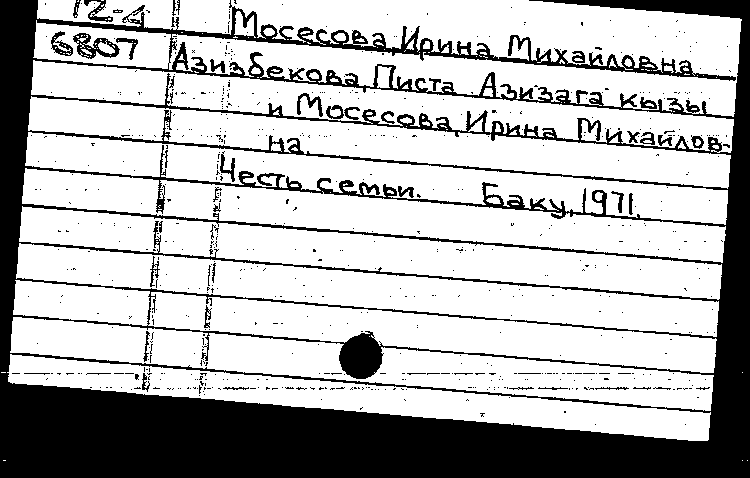 72-4 Мосесова, Ирина Михайловна
6807 Азизбекова, Писта Азизага кызы
и Мосесова, Ирина Михайлов-
на.
Честь семьи. Баку, 1971.